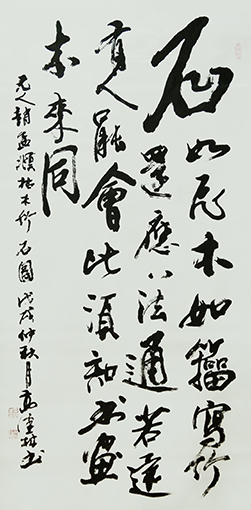 石如飛木如籀寫竹
還應八法通若
有人能會此須知書畫
本來同
元人趙孟頫枯木竹石圖戊戌仲秋月高林書